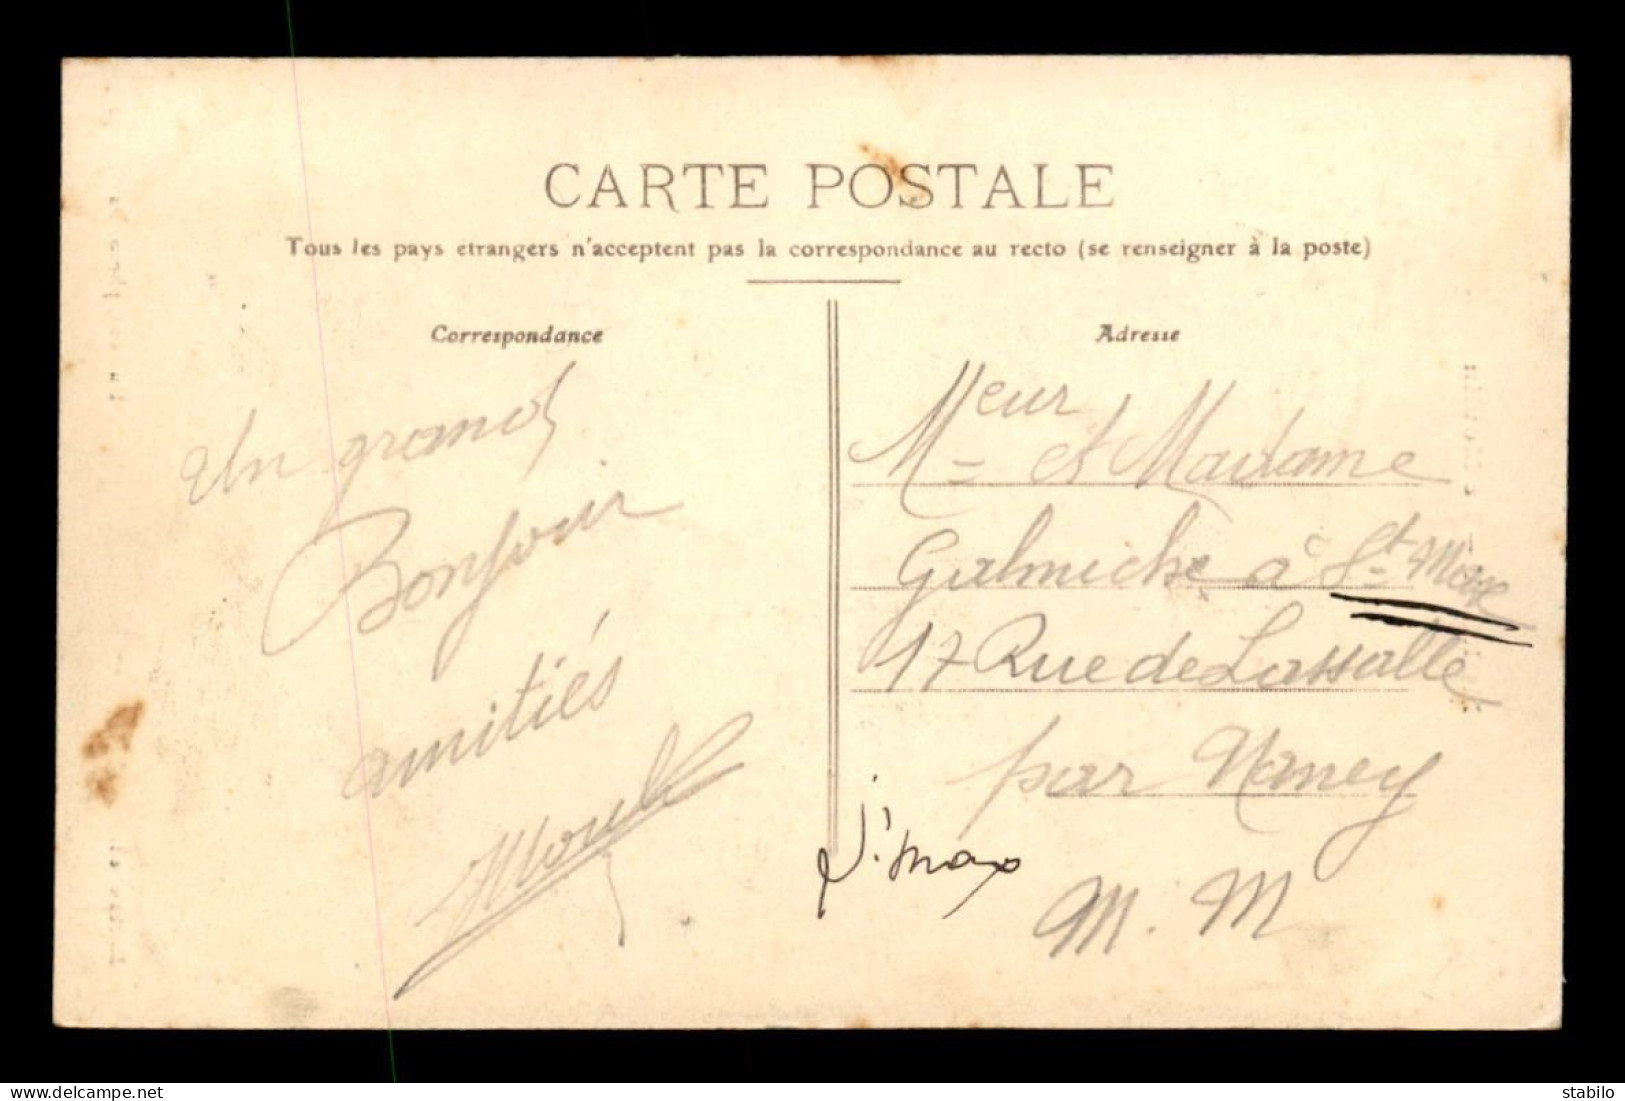 CARTE POSTALE
Tous les pays etrangers n'acceptent pas la correspondance au recto (se renseigner à la poste)
Correspondance
Un grand
Bonjour
amitiés
Adresse
Meur et Madame
Galmiche à St Max
17 Rue de Lassalle
par Nancy
M. M
St max
stabilo